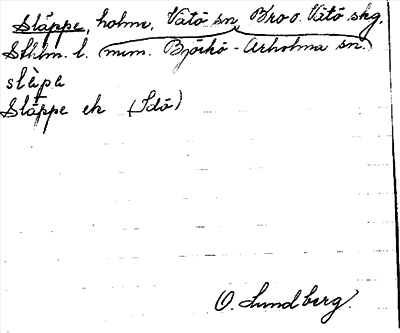 Släppe, holme, Vätö sn, Bro o. Vätö skg,
Sthlm. l. (num. Björkö-Arholma sn.)
slàpa
Släppe ek (Idö)
O. Lundberg.